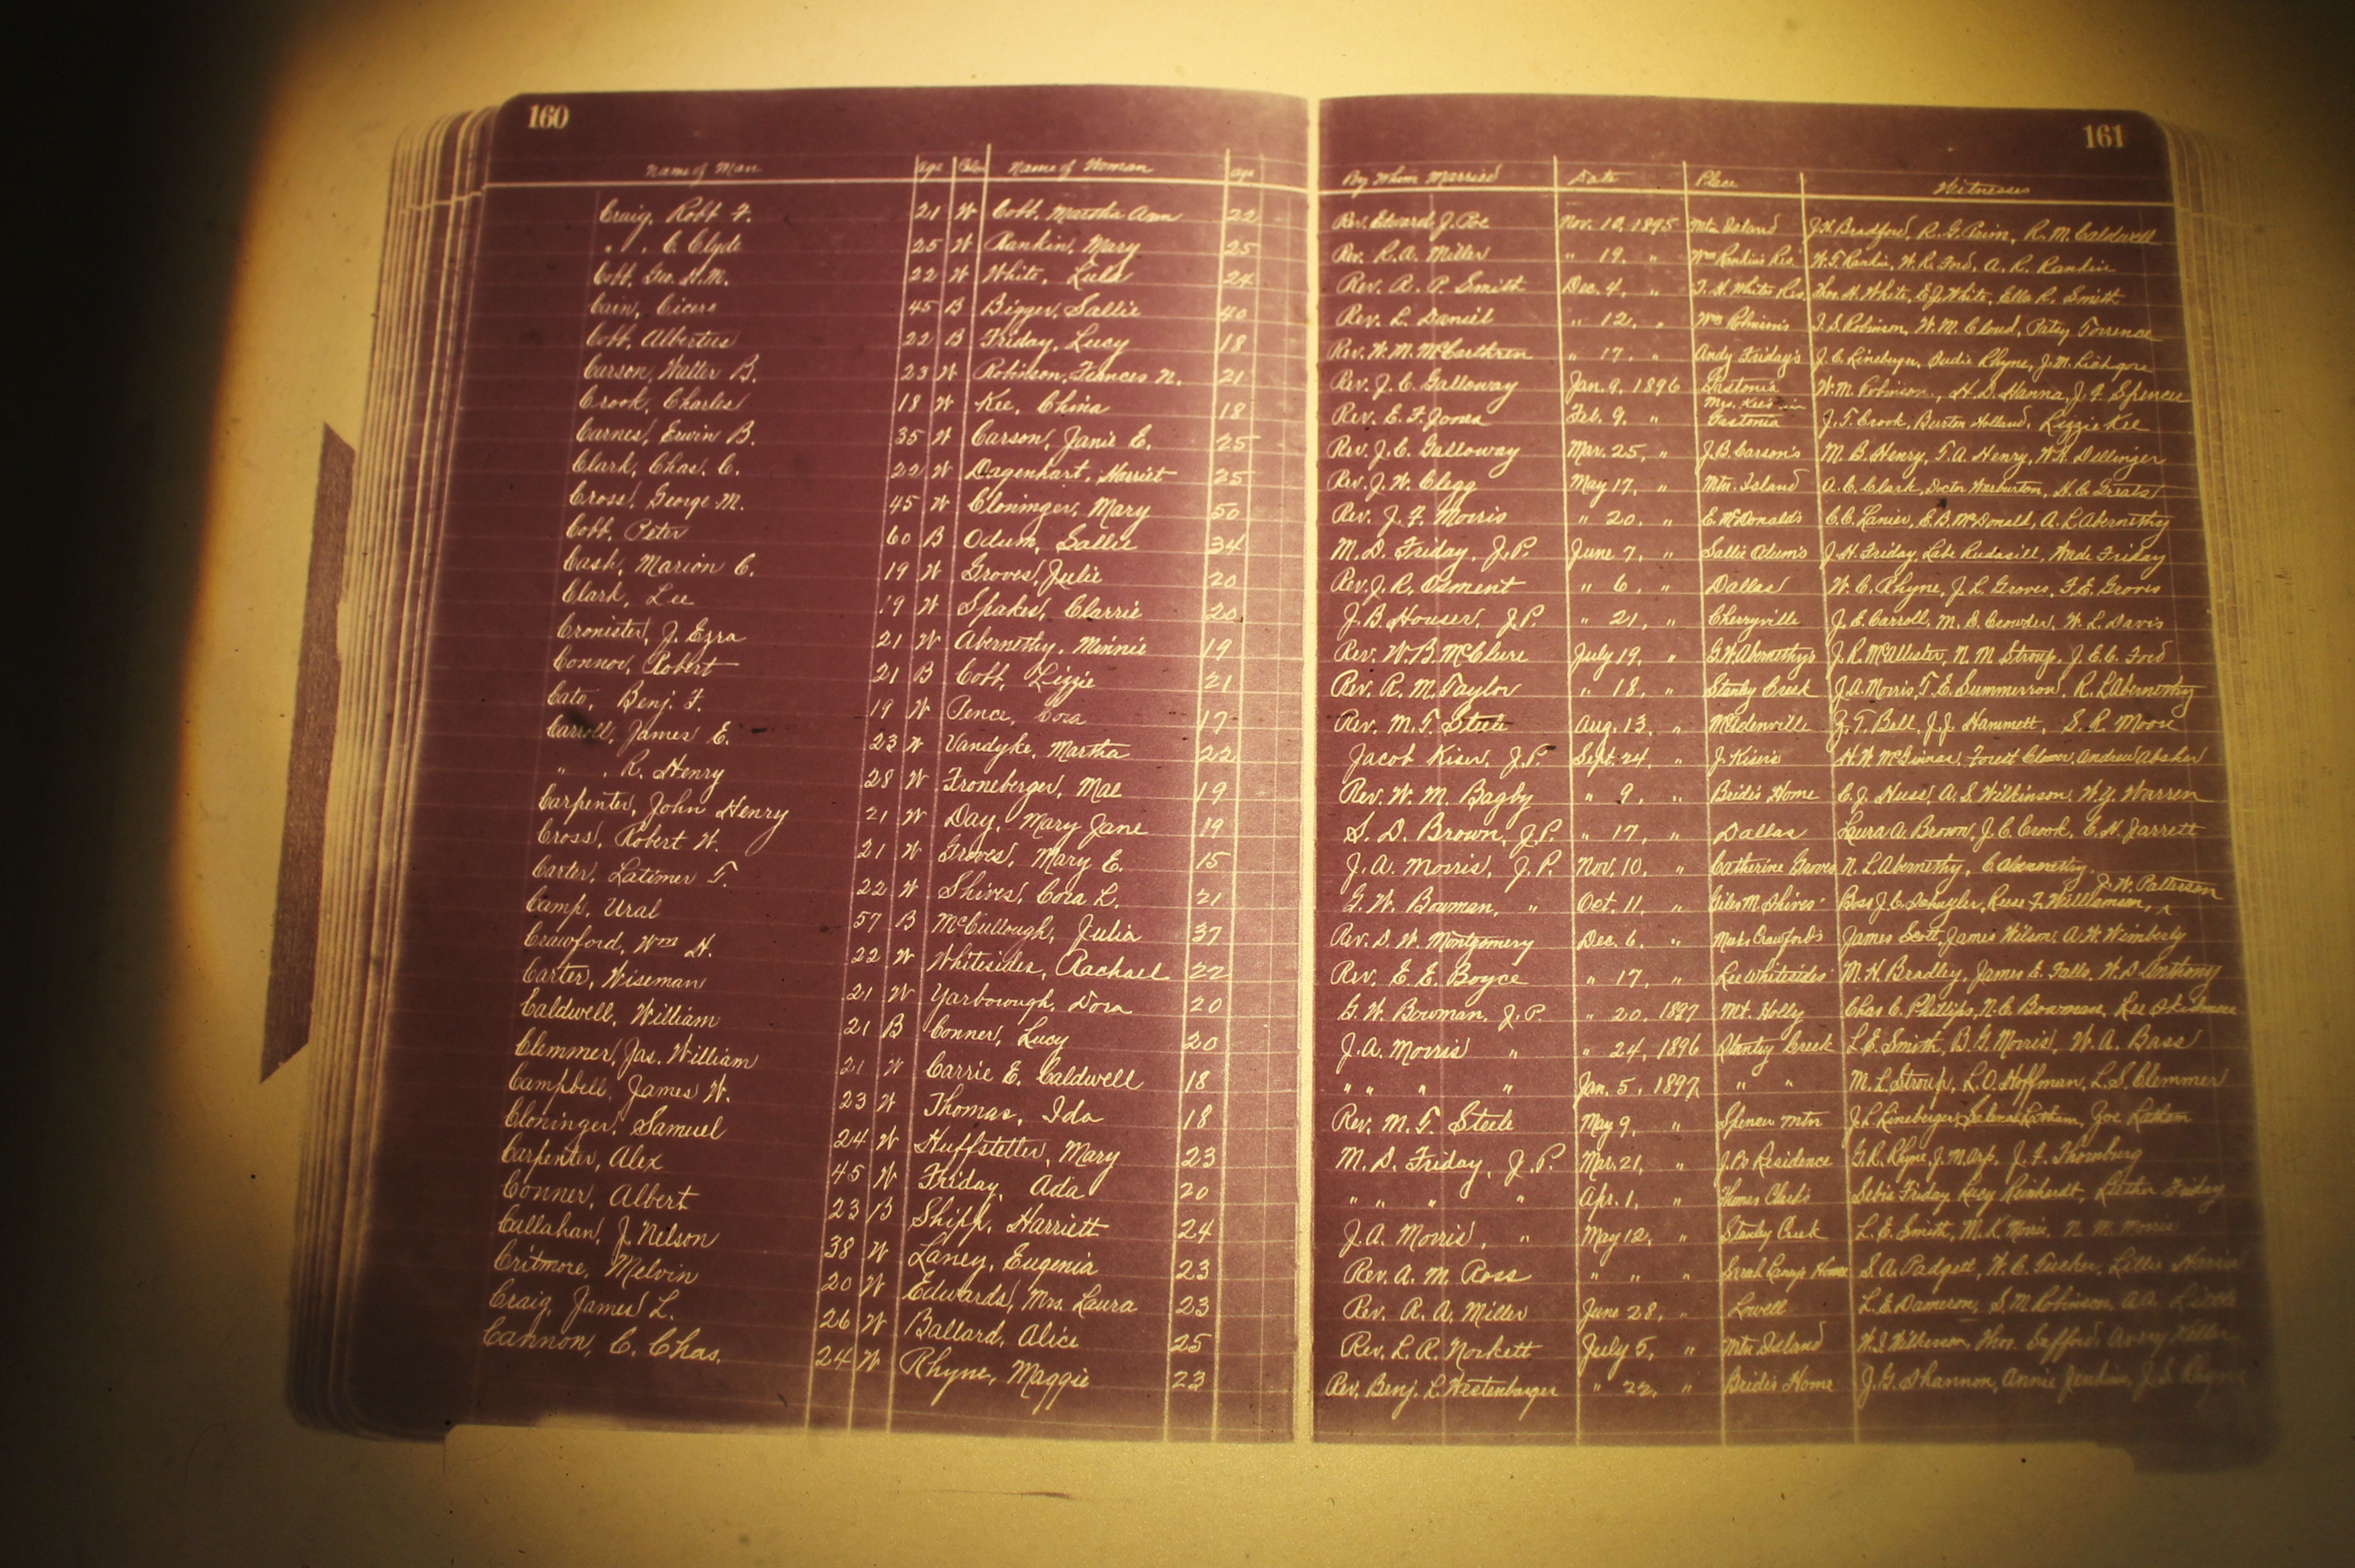 160
161
Name of Man Age Color Name of Woman Age By Whom Married Date Place Witnesses
Craig, Robt F. 21 W Cobb, Martha Ann 22 Rev. Edward J. Poe Nov. 10, 1895 Mtn Island J.H. Bradford, R.G. R. M. Caldwell
" , C. Clyde 25 W Rankin, Mary 25 Rev. R.A. Miller " 19, " Wm Rankin's Res. W.T. Rankin, W.R. Ford, A. R. Rankin
Cobb, Geo. H.M. 22 W White, Lula 24 Rev. R. P. Smith Dec. 4, " T. H. White Res. Thos. H. White, E.J. White, Ella R. Smith
Cain, Cicero 45 B Bigger, Sallie 40 Rev. L. Daniel " 12, " Wm J. S. Robinson, W. M. Cloud, Patsy Torrence
Cobb, Albertus 22 B Friday, Lucy 18 Rev. W. M. " 17, " Andy Friday's J. C. Lineberger, Rhyne, J.M.
Carson, Walter B. 23 W Robinson, Frances N. 21 Rev. J. C. Galloway Jan. 9, 1896 Gastonia W.M. Robinson, H. D. Hanna, J. F. Spencer
Crook, Charles 18 W Kee, China 18 Rev. E. F. Jones Feb. 9, " Mrs. Kee's in Gastonia J. T. Crook, Burton Holland, Lizzie Kee
Carnes, Erwin B. 35 W Carson, Janie E. 25 Rev. J. C. Galloway Mar. 25, " J. B. Carson's M. B. Henry, T. A. Henry, Dellinger
Clark, Chas. C. 22 W Dagenhart, Harriet 25 Rev. J. W. Clegg May 17, " Mtn. Island A. C. Clark, Doctor Warburton, H. C.
Cross, George M. 45 W Cloninger, Mary 50 Rev. J. F. Morris " 20, " E. McDonald's C. C. Lanier, E. B. McDonald, A. L. Abernethy
Cobb, Peter 60 B Odum, Sallie 34 M. D. Friday, J.P. June 7, " Sallie Odum's J. H. Friday, Labe Rudasill, Wade Friday
Cash, Marion C. 19 W Groves, Julie 20 Rev. J. R. Osment " 6, " Dallas W. C. Rhyne, J. L. Groves, F. E. Groves
Clark, Lee 19 W Spakes, Clarrie 20 J. B. Houser, J.P. " 21, " Cherryville J. E. Carroll, M. D. Crowder, W. L. Davis
Cronister, J. Ezra 21 W Abernethy, Minnie 19 Rev. W. B. McClure July 19, " G.W. Abernethy's J. R. McAllister, N. M. Stroup, J. E. C. Ford
Connor, Robert 21 B Cobb, Lizzie 21 Rev. R. M. Taylor " 18, " Stanly Creek J. A. Morris, T. E. Summerrow, R. L. Abernethy
Cato, Benj. F. 19 W Pence, Cora 17 Rev. M. T. Steele Aug. 13, " McAdenville Z. T. Bell, J. J. Hammett, S. R. Moose
Carroll, James E. 23 W Vandyke, Martha 22 Jacob Kiser, J.P. Sept. 24, " J. Kiser's H. W. McGinnas, Forest Andrew Absher
" , R. Henry 28 W Froneberger, Mae 19 Rev. W. M. Bagby " 9, " Bride's Home C. J. Huss, A. S. Wilkinson, W. Y. Warren
Carpenter, John Henry 21 W Day, Mary Jane 19 S. D. Brown, J.P. " 17, " Dallas Laura A. Brown, J. C. Crook, E. H. Jarrett
Cross, Robert W. 21 W Groves, Mary E. 15 J. A. Morris, J.P. Nov. 10, " Catherine Groves N. L. Abernethy, C. Abernethy,
Carter, Latimer T. 22 W Shives, Cora L. 21 G. W. Bowman, " Oct. 11, " Giles M Shives' Boss J. C. Reese F. Williamson, J. W. Patterson
Camp, Ural 57 B McCullough, Julia 37 Rev. D. W. Montgomery Dec. 6, " Crawford's James Scott, James Wilson, A. W. Wimberly
Crawford, Wm H. 22 W Whitesides, Rachael 22 Rev. E. E. Boyce " 17, " Lee Whitesides' M. H. Bradley, James E. Falls, W. D. Anthony
Carter, Wiseman 21 W Yarborough, Dora 20 G. W. Bowman, J.P. " 20, 1897 Mt. Holly Chas C. Phillips, N. C. Bowman, Lee Skidmore
Caldwell, William 21 B Conner, Lucy 20 J. A. Morris " " 24, 1896 Stanley Creek L. E. Smith, B. G. Morris, W. A. Bass
Clemmer, Jas. William 21 W Carrie E. Caldwell 18 " " " " Jan. 5, 1897 " " M. L. Stroup, L. O. Hoffman, L. S. Clemmer
Campbell, James W. 23 W Thomas, Ida 18 Rev. M. T. Steele May 9, " Spencer Mtn J. L. Lineberger, Selena Latham, Joe Latham
Cloninger, Samuel 24 W Huffstetler, Mary 23 M. D. Friday, J.P. Mar. 21, " J.P.'s Residence G. R. Rhyne, J. M. Arp, J. F. Thornburg
Carpenter, Alex 45 W Friday, Ada 20 " " " " Apr. 1, " Thomas Clark's Friday, Lucy Reinhardt, Luther Friday
Conner, Albert 23 B Shipp, Harriett 24 J. A. Morris, " May 12, " Stanley Creek L. E. Smith, M. K. Morris, N. M. Morris
Callahan, J. Nelson 38 W Laney, Eugenia 23 Rev. A. M. Ross " " " Sarah Laney's Home S. A. Padgett, W. C. Tucker, Lillie Harris
Critmore, Melvin 20 W Edwards, Mrs. Laura 23 Rev. R. A. Miller June 28, " Lowell L. E. Dameron, S. M. Robinson, A.A. Little
Craig, James L. 26 W Ballard, Alice 25 Rev. L. R. Norkett July 5, " Mtn Island W. J. Wilkerson, Thos. Safford, Avery
Cannon, C. Chas. 24 W Rhyne, Maggie 23 Rev. Benj. L. Westenbarger " 22, " Bride's Home J. G. Shannon, Annie Jenkins, J. S. Rhyne